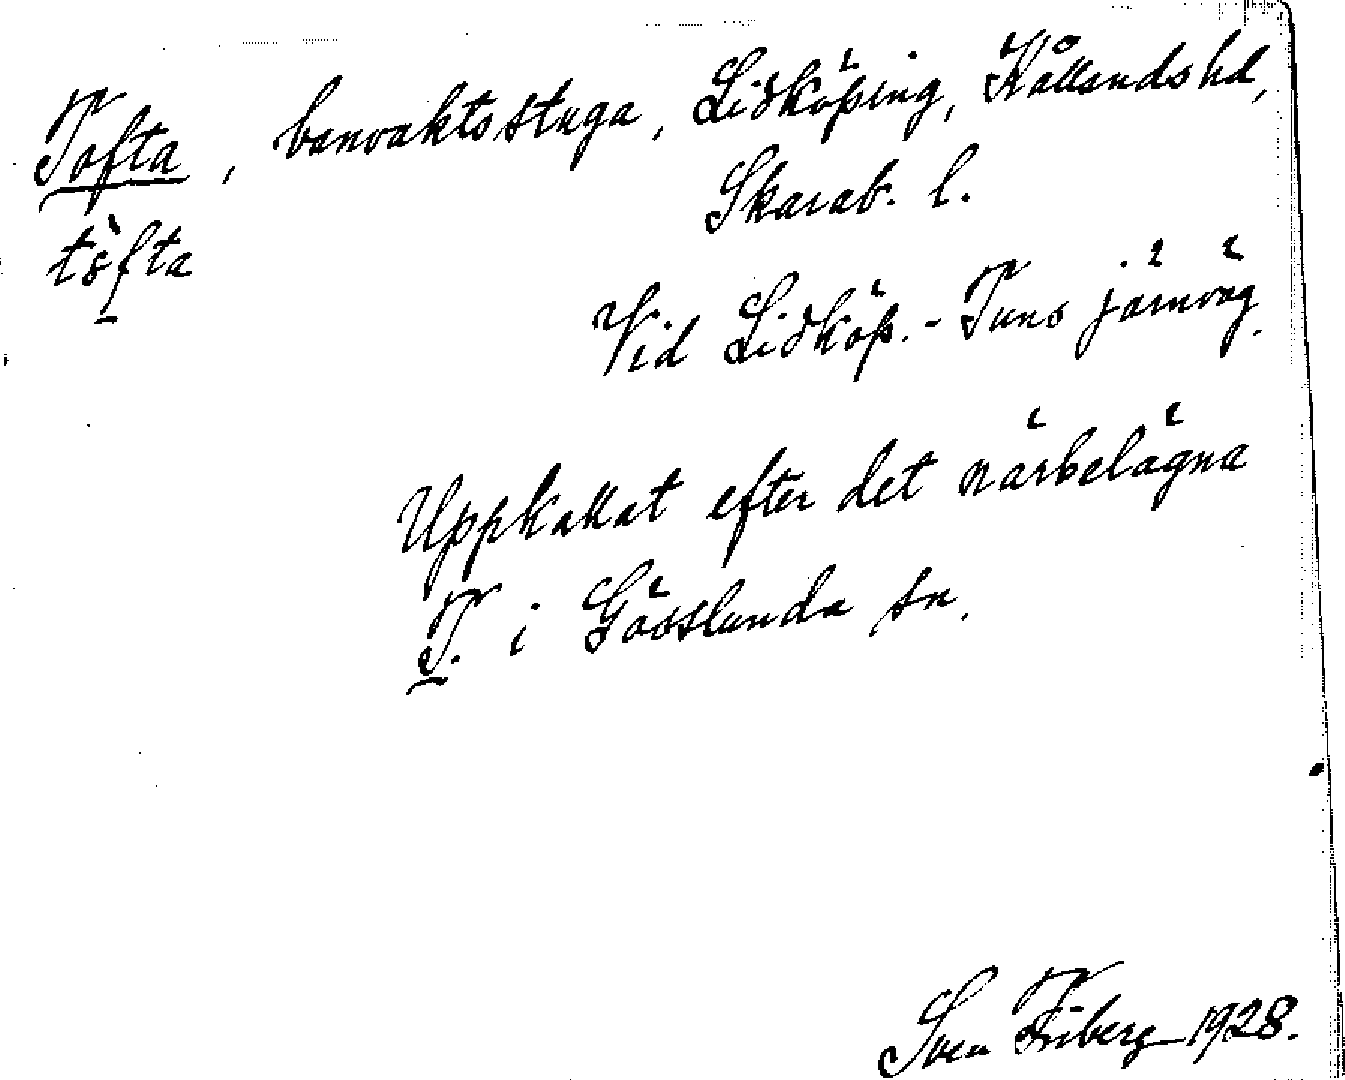 Tofta, banvaktsstuga, Lidköping, Kållands hd,
Skarab. l.
tòfta
Vid Lidköp.-Tuns järnväg.
Uppkallat efter det närbelägna
T. i Gösslunda sn.
Sven Friberg 1928.